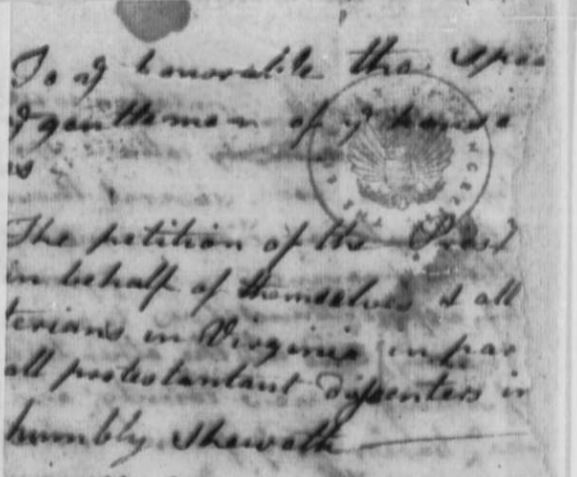 To ye honorable the Spea
& gentlemen of ye house
s
The petition of the Presb
in behalf of themselves & all
terians in Virginia in par
all protestantant dissenters in
humbly Sheweth